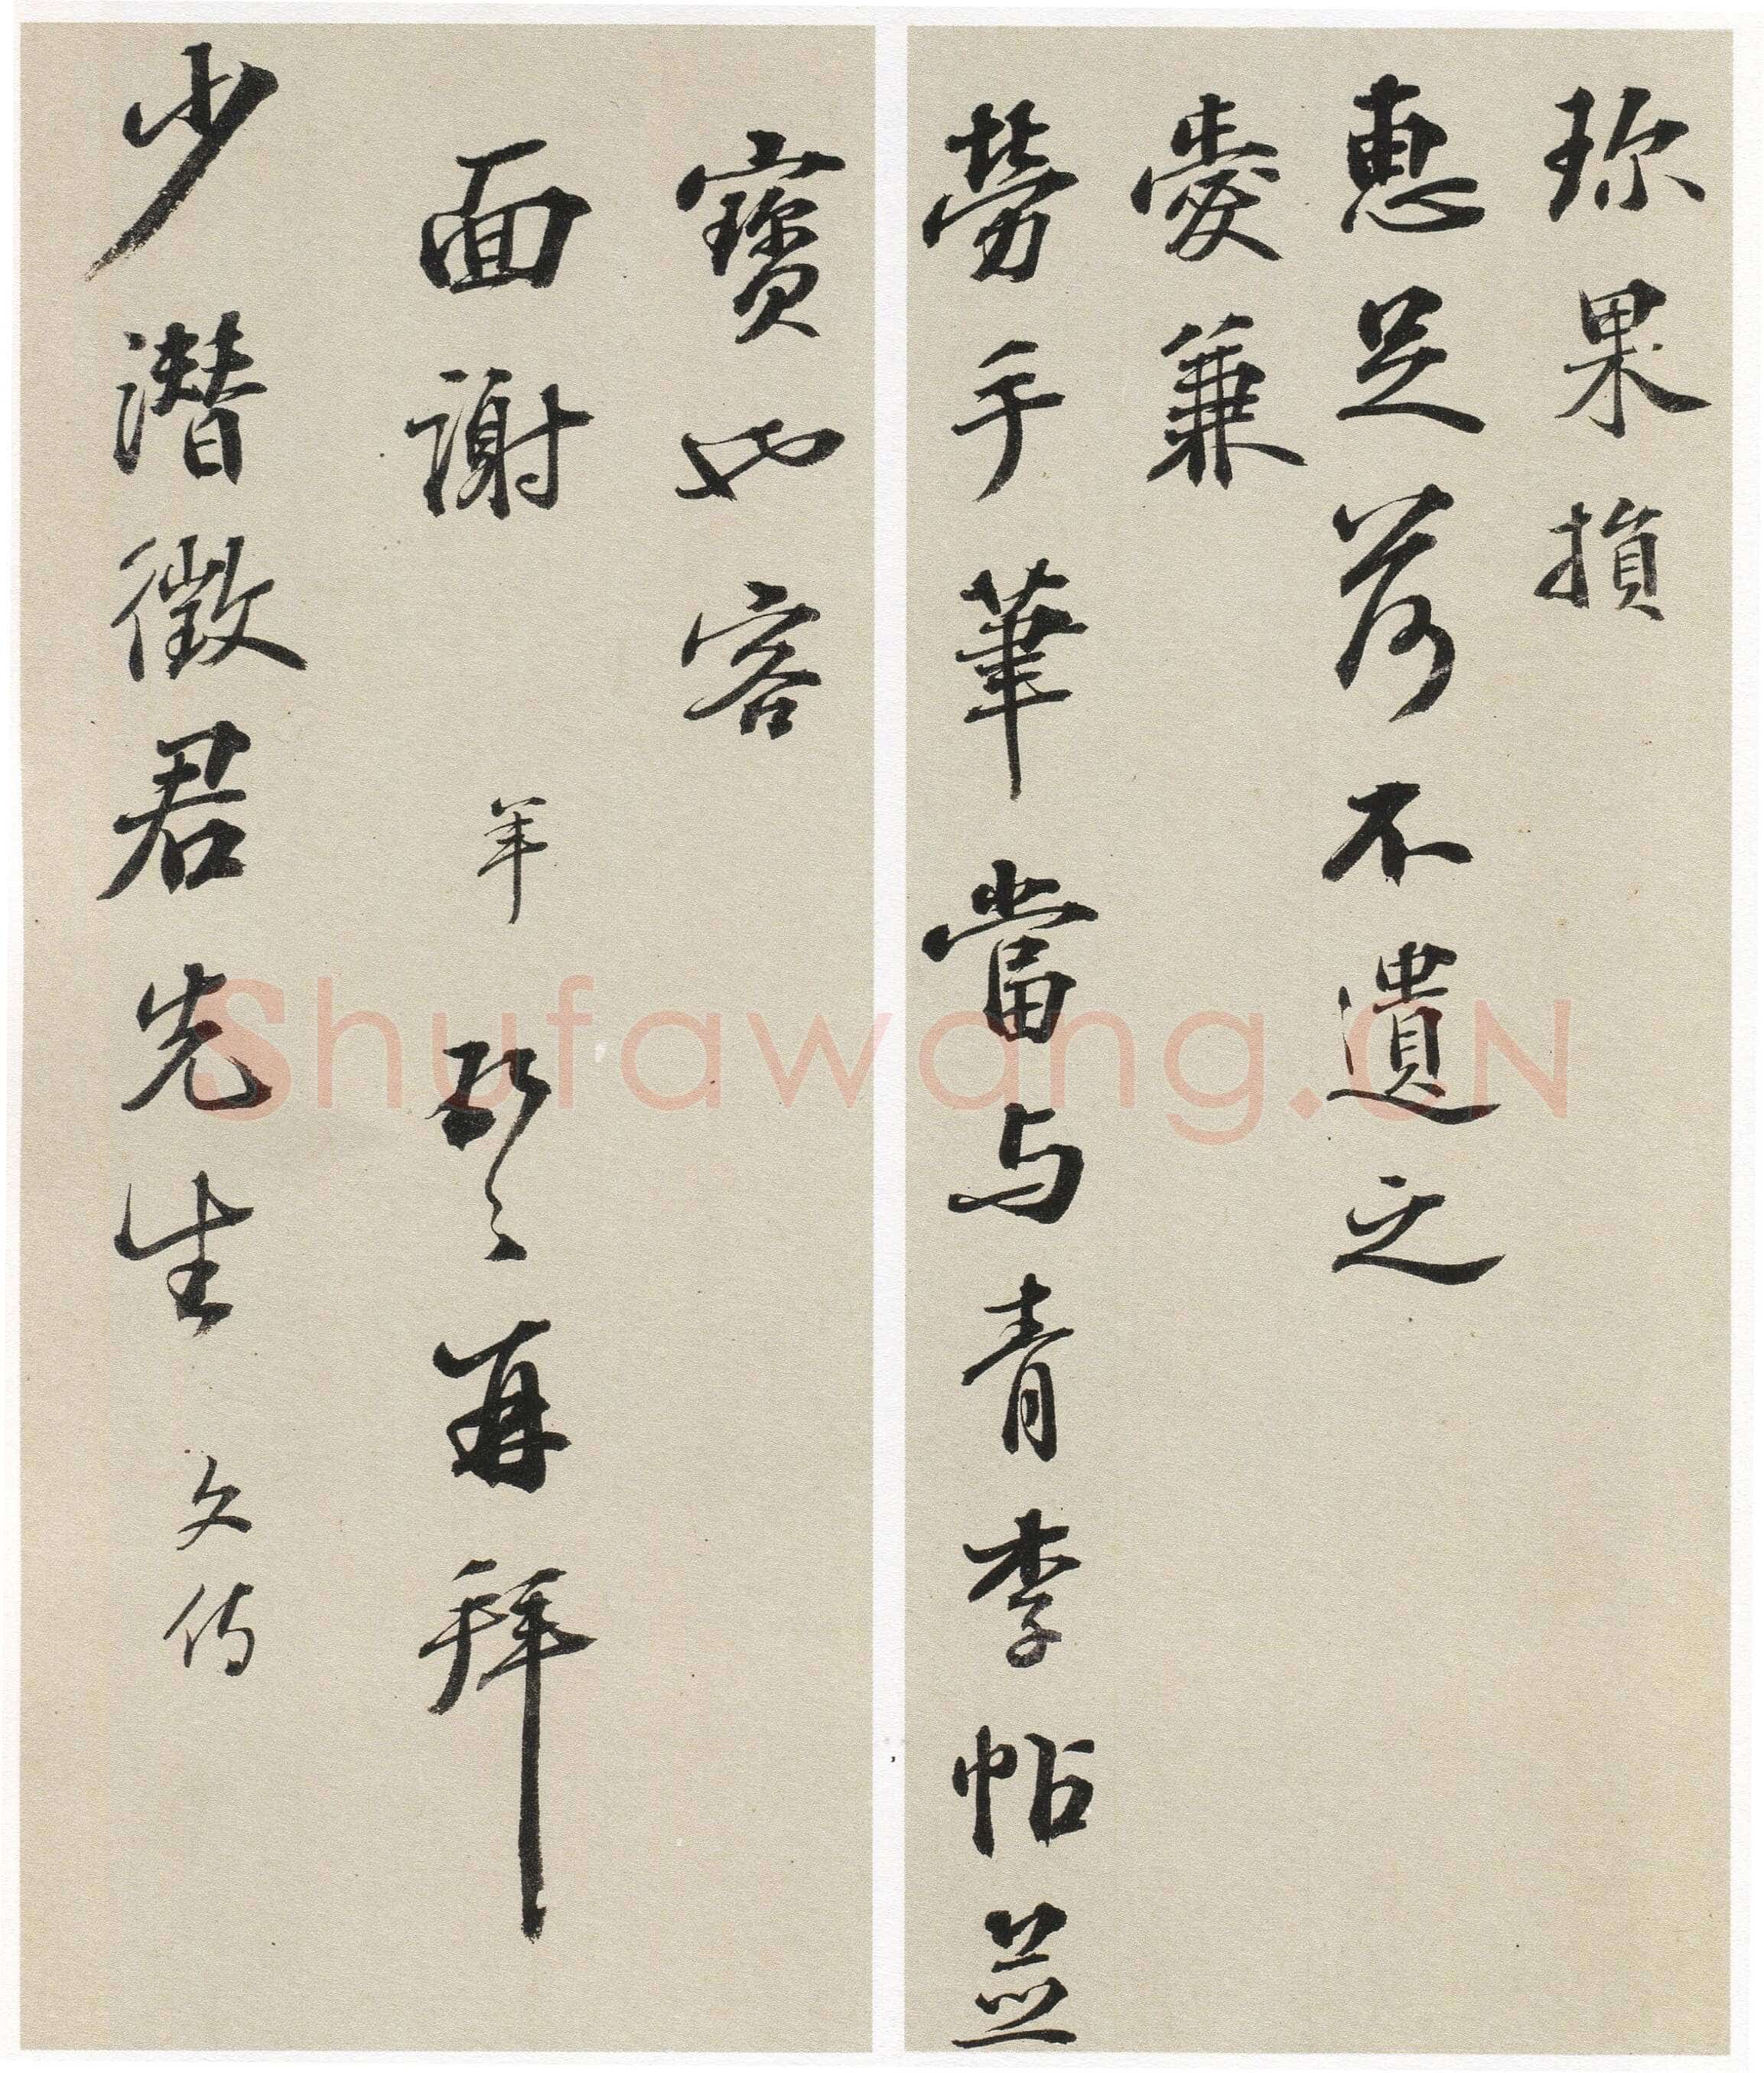 珎果損
惠足荷不遺之
愛兼
勞手筆當与青李帖並
寶也容
面謝 頓首再拜
少潜徵君先生 文侍
Shufawang.CN